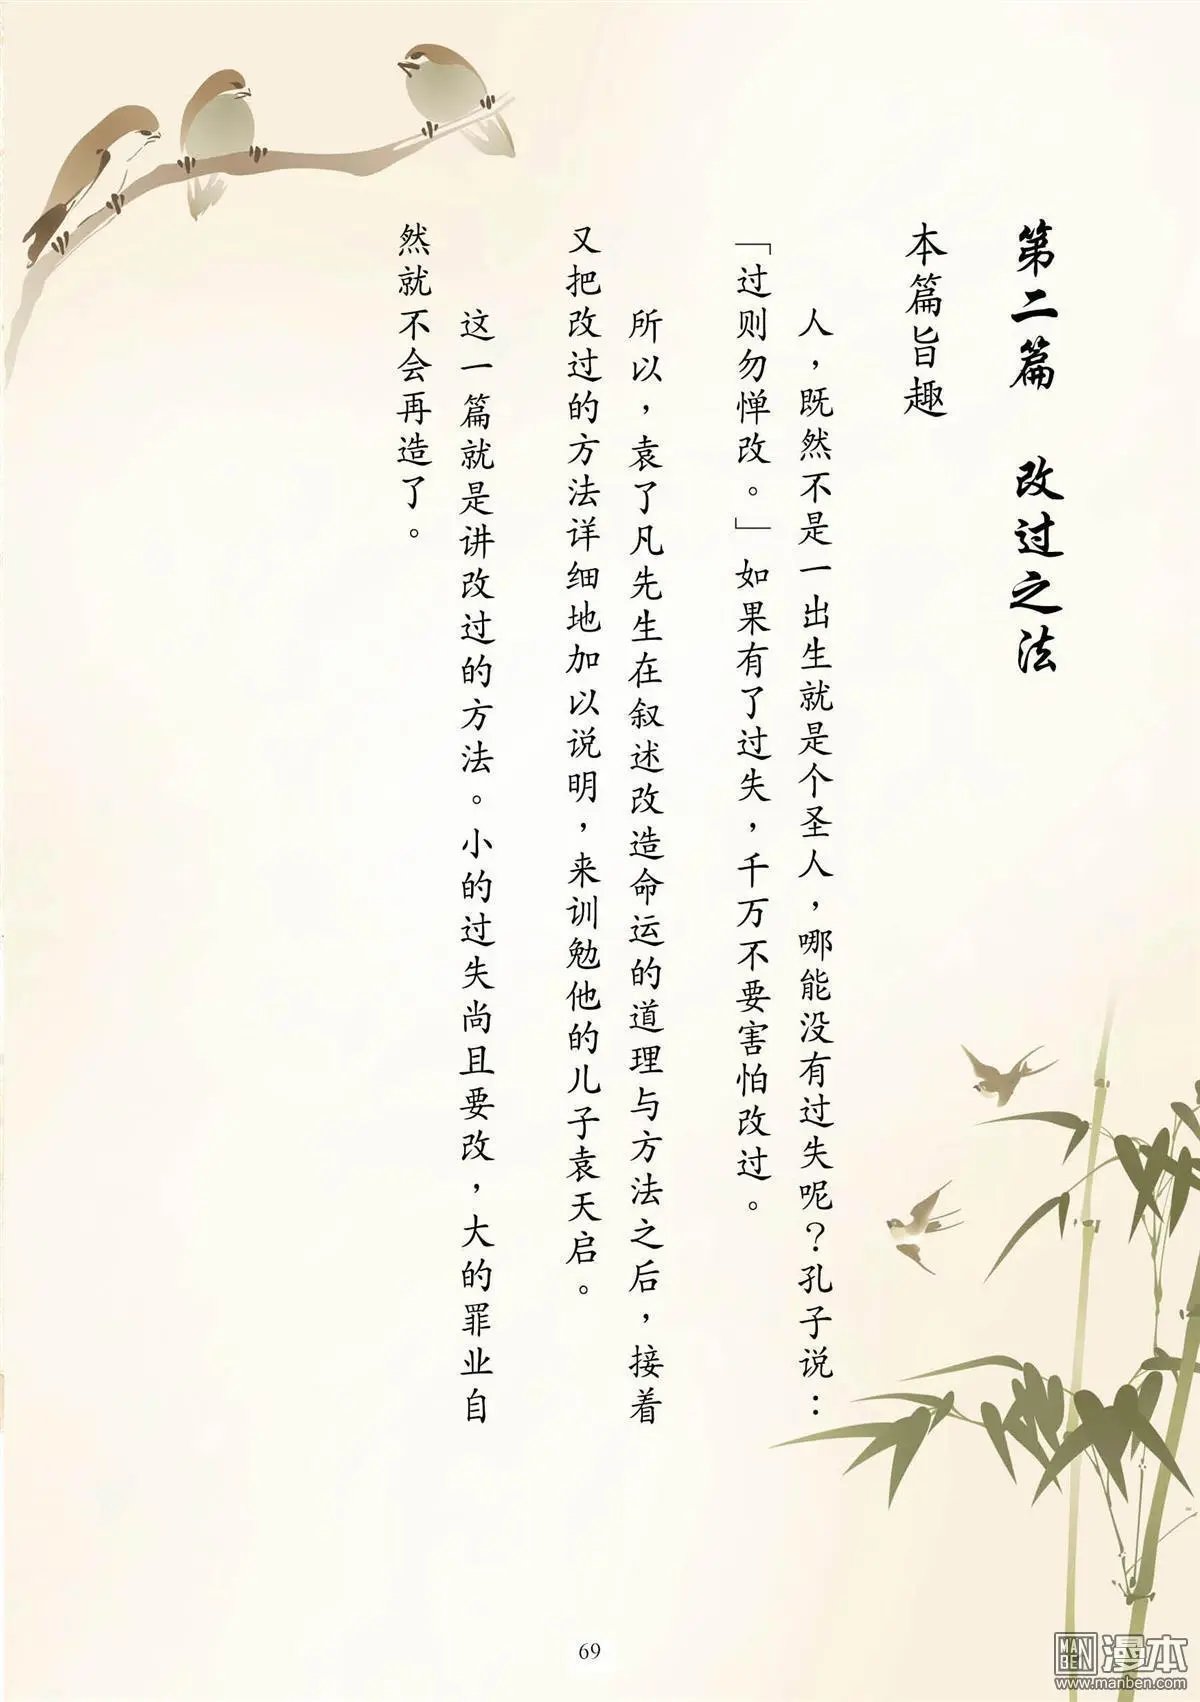 第二篇　改过之法
本篇旨趣
人，既然不是一出生就是个圣人，哪能没有过失呢？孔子说：
「过则勿惮改。」如果有了过失，千万不要害怕改过。
所以，袁了凡先生在叙述改造命运的道理与方法之后，接着
又把改过的方法详细地加以说明，来训勉他的儿子袁天启。
这一篇就是讲改过的方法。小的过失尚且要改，大的罪业自
然就不会再造了。
69
MAN BEN 漫本
www.manben.com